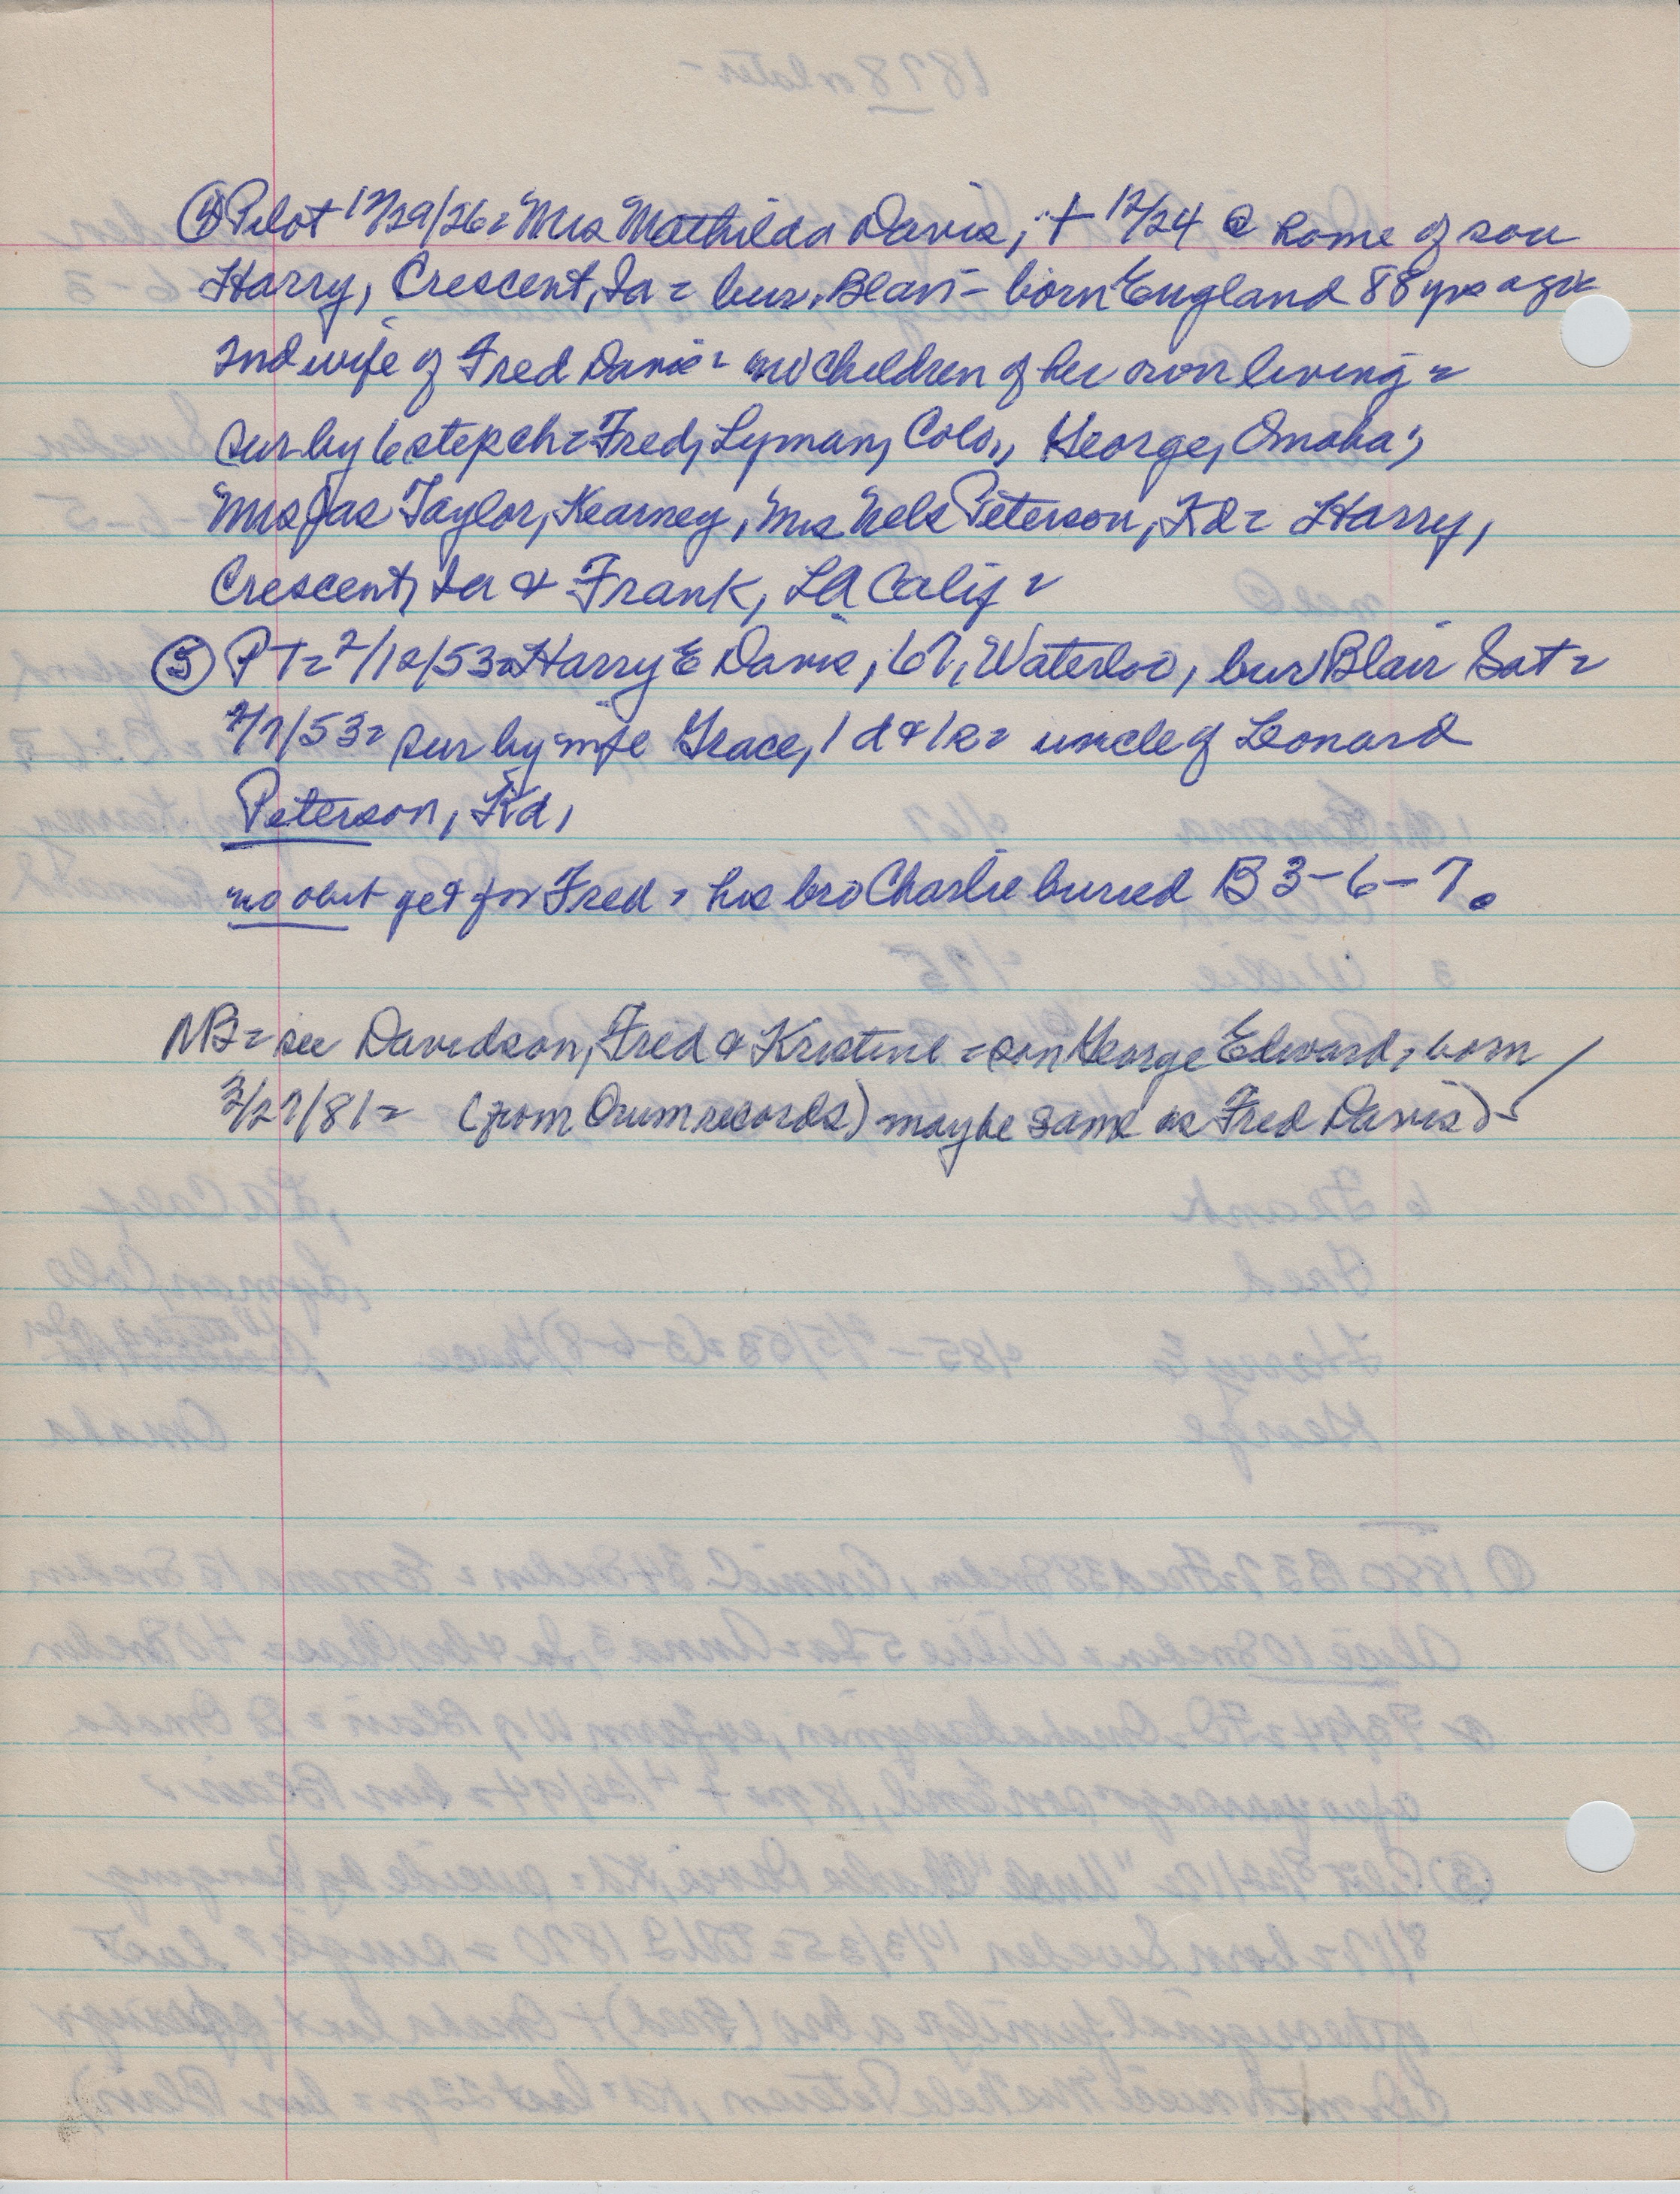 ④ Pilot 12/29/26= Mrs Mathilda Davis, + 12/24 @ home of son
Harry, Crescent, Ia = bur. Blair = born England 88 yrs ago=
2nd wife of Fred Davis = no children of her own living =
sur by 6 step ch = Fred, Lyman, Colo., George, Omaha,
Mrs Jas Taylor, Kearney, Mrs Nels Peterson, Kd = Harry,
Crescent, Ia & Frank, LA Calif =
⑤ PT= 2/12/53= Harry E Davis, 67, Waterloo, bur Blair Sat =
2/7/53= sur by wife Grace, 1 d & 1 s= uncle of Leonard
Peterson, Kd,
no obit yet for Fred = his bro Charlie buried B 3-6-7.
NB= see Davidson, Fred & Kristine = son George Edward, born
2/27/81= (from Orum records) maybe same as Fred Davis)